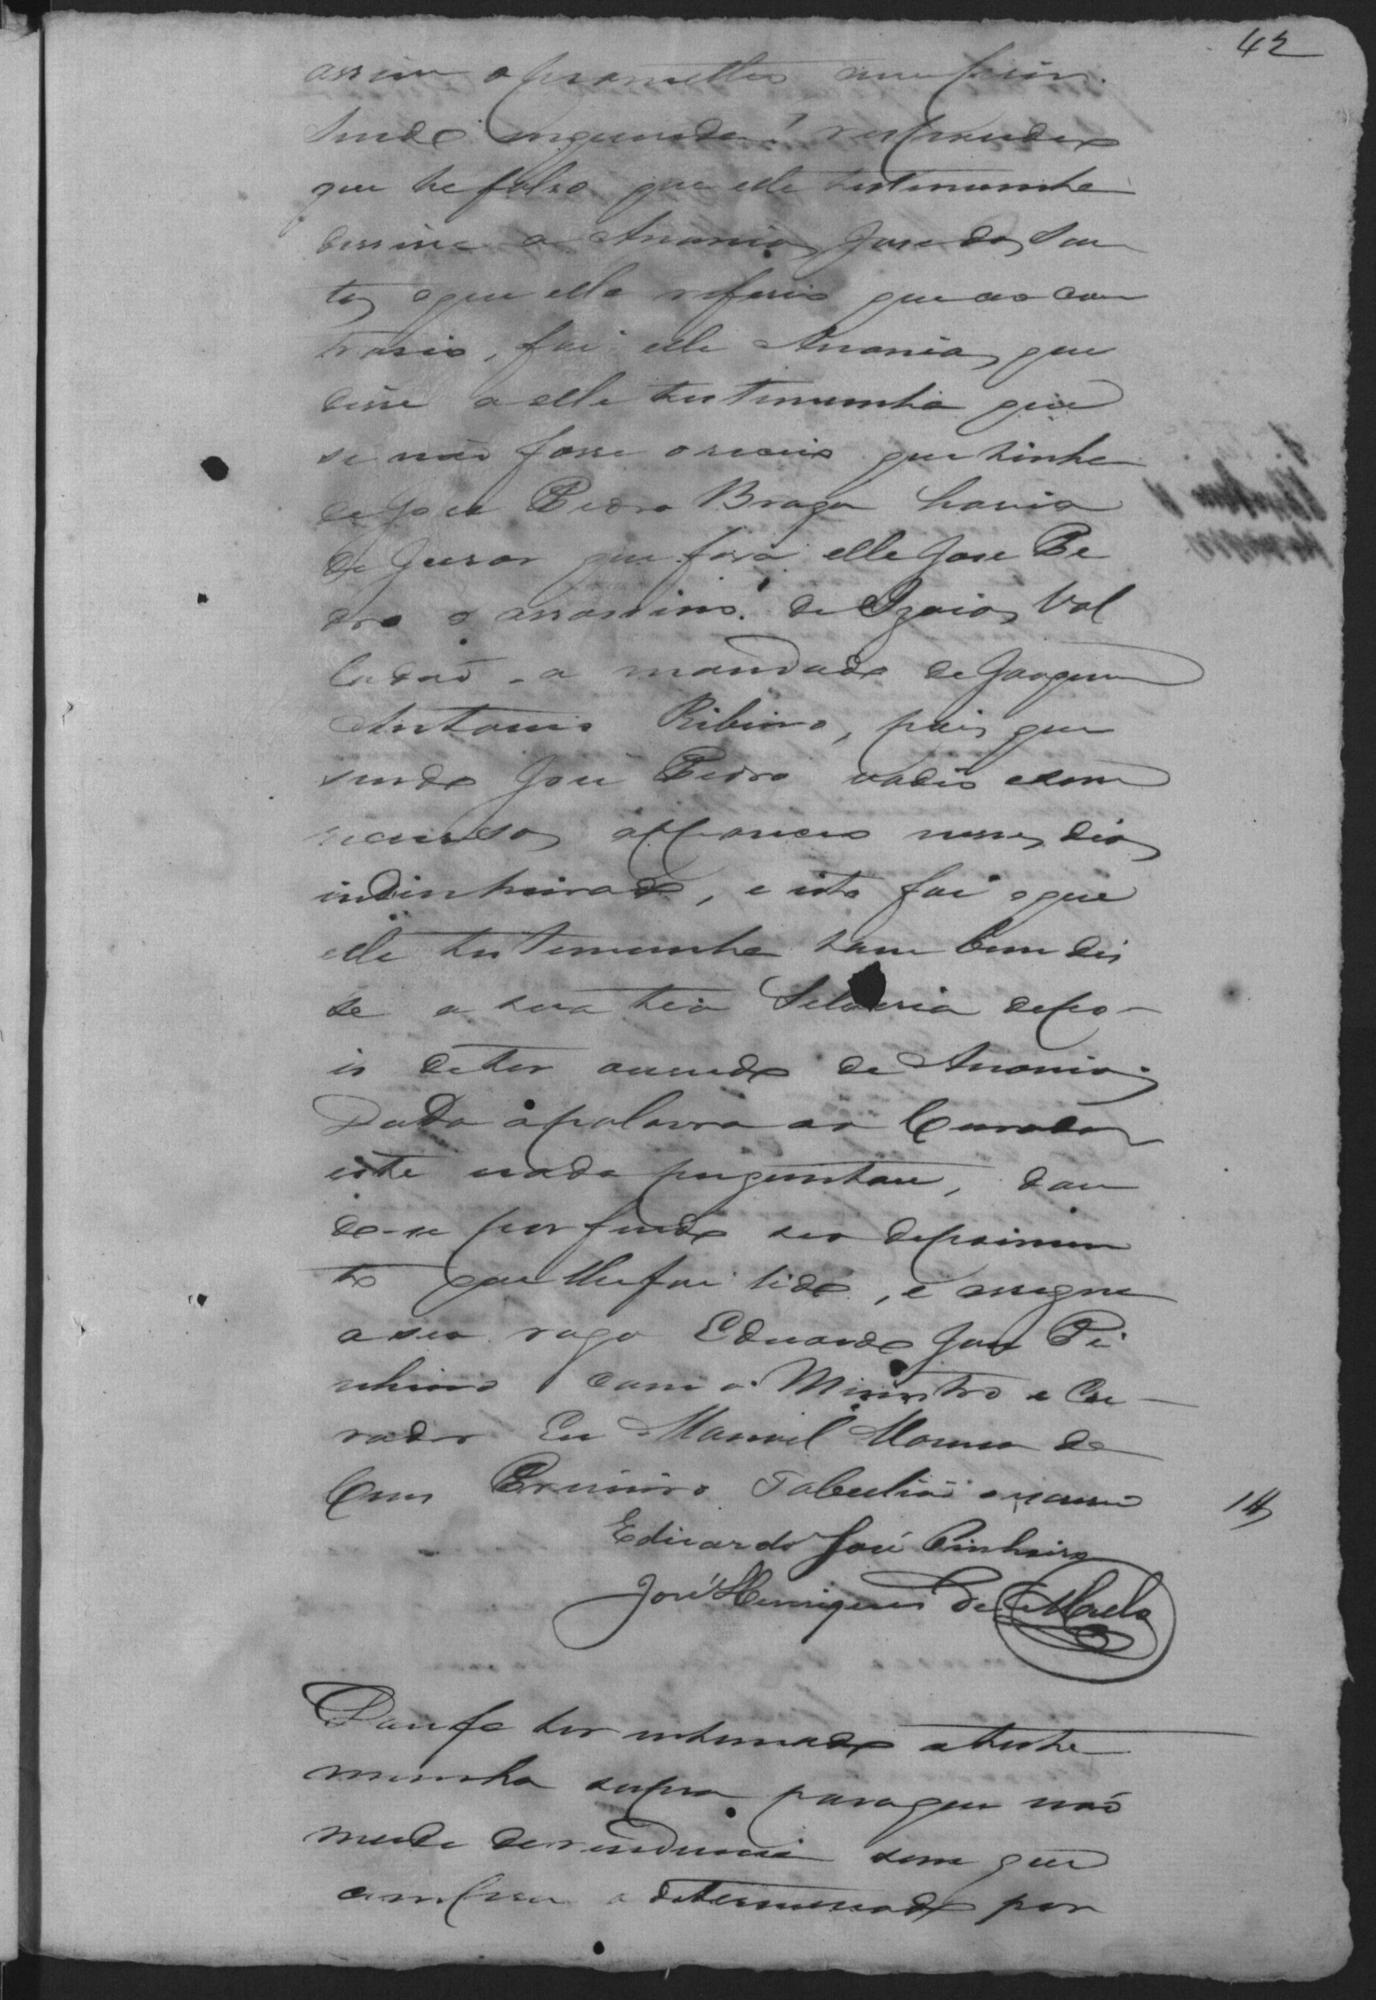 42
assim o prometteo cumprir.
Sendo inquerida? respondeo
que he falso que elle testemunha
dissese a Ananias Jose dos San
tos o que elle referio que ao con
trario, foi elle Ananias que
disse a elle testemunha que
se não fosse o receio que tinha
de Jose Pedro Braga havia
de jurar que fora elle Jose Pe
dro o assassino de Izaias Val
ladaõ a mandado de Joaquim
Antonio Ribeiro, pois que
sendo José Pedro vadio e sem
recursos appareceo nesses dias
indinheirado, e isto foi o que
elle testemunha tambem dis
se a sua tia Silveria depo-
is de ter ouvido de Ananias
Dada a palavra ao Curador
este nada perguntou, dan
do-se por findo seo depoimen
to que lhe foi lido, e assigna
a seu rogo Eduardo Jose Pi
nheiro com o Ministro e Cu-
rador Eu Manoel Moreira da
Cruz Primeiro Tabeliaõ o escrevi
14
Eduardo José Pinheiro
José Henriques de Mello
Dou fe ter intimado a teste
munha supra para que naõ
mude de residencia sem que
cumpra o determinado por